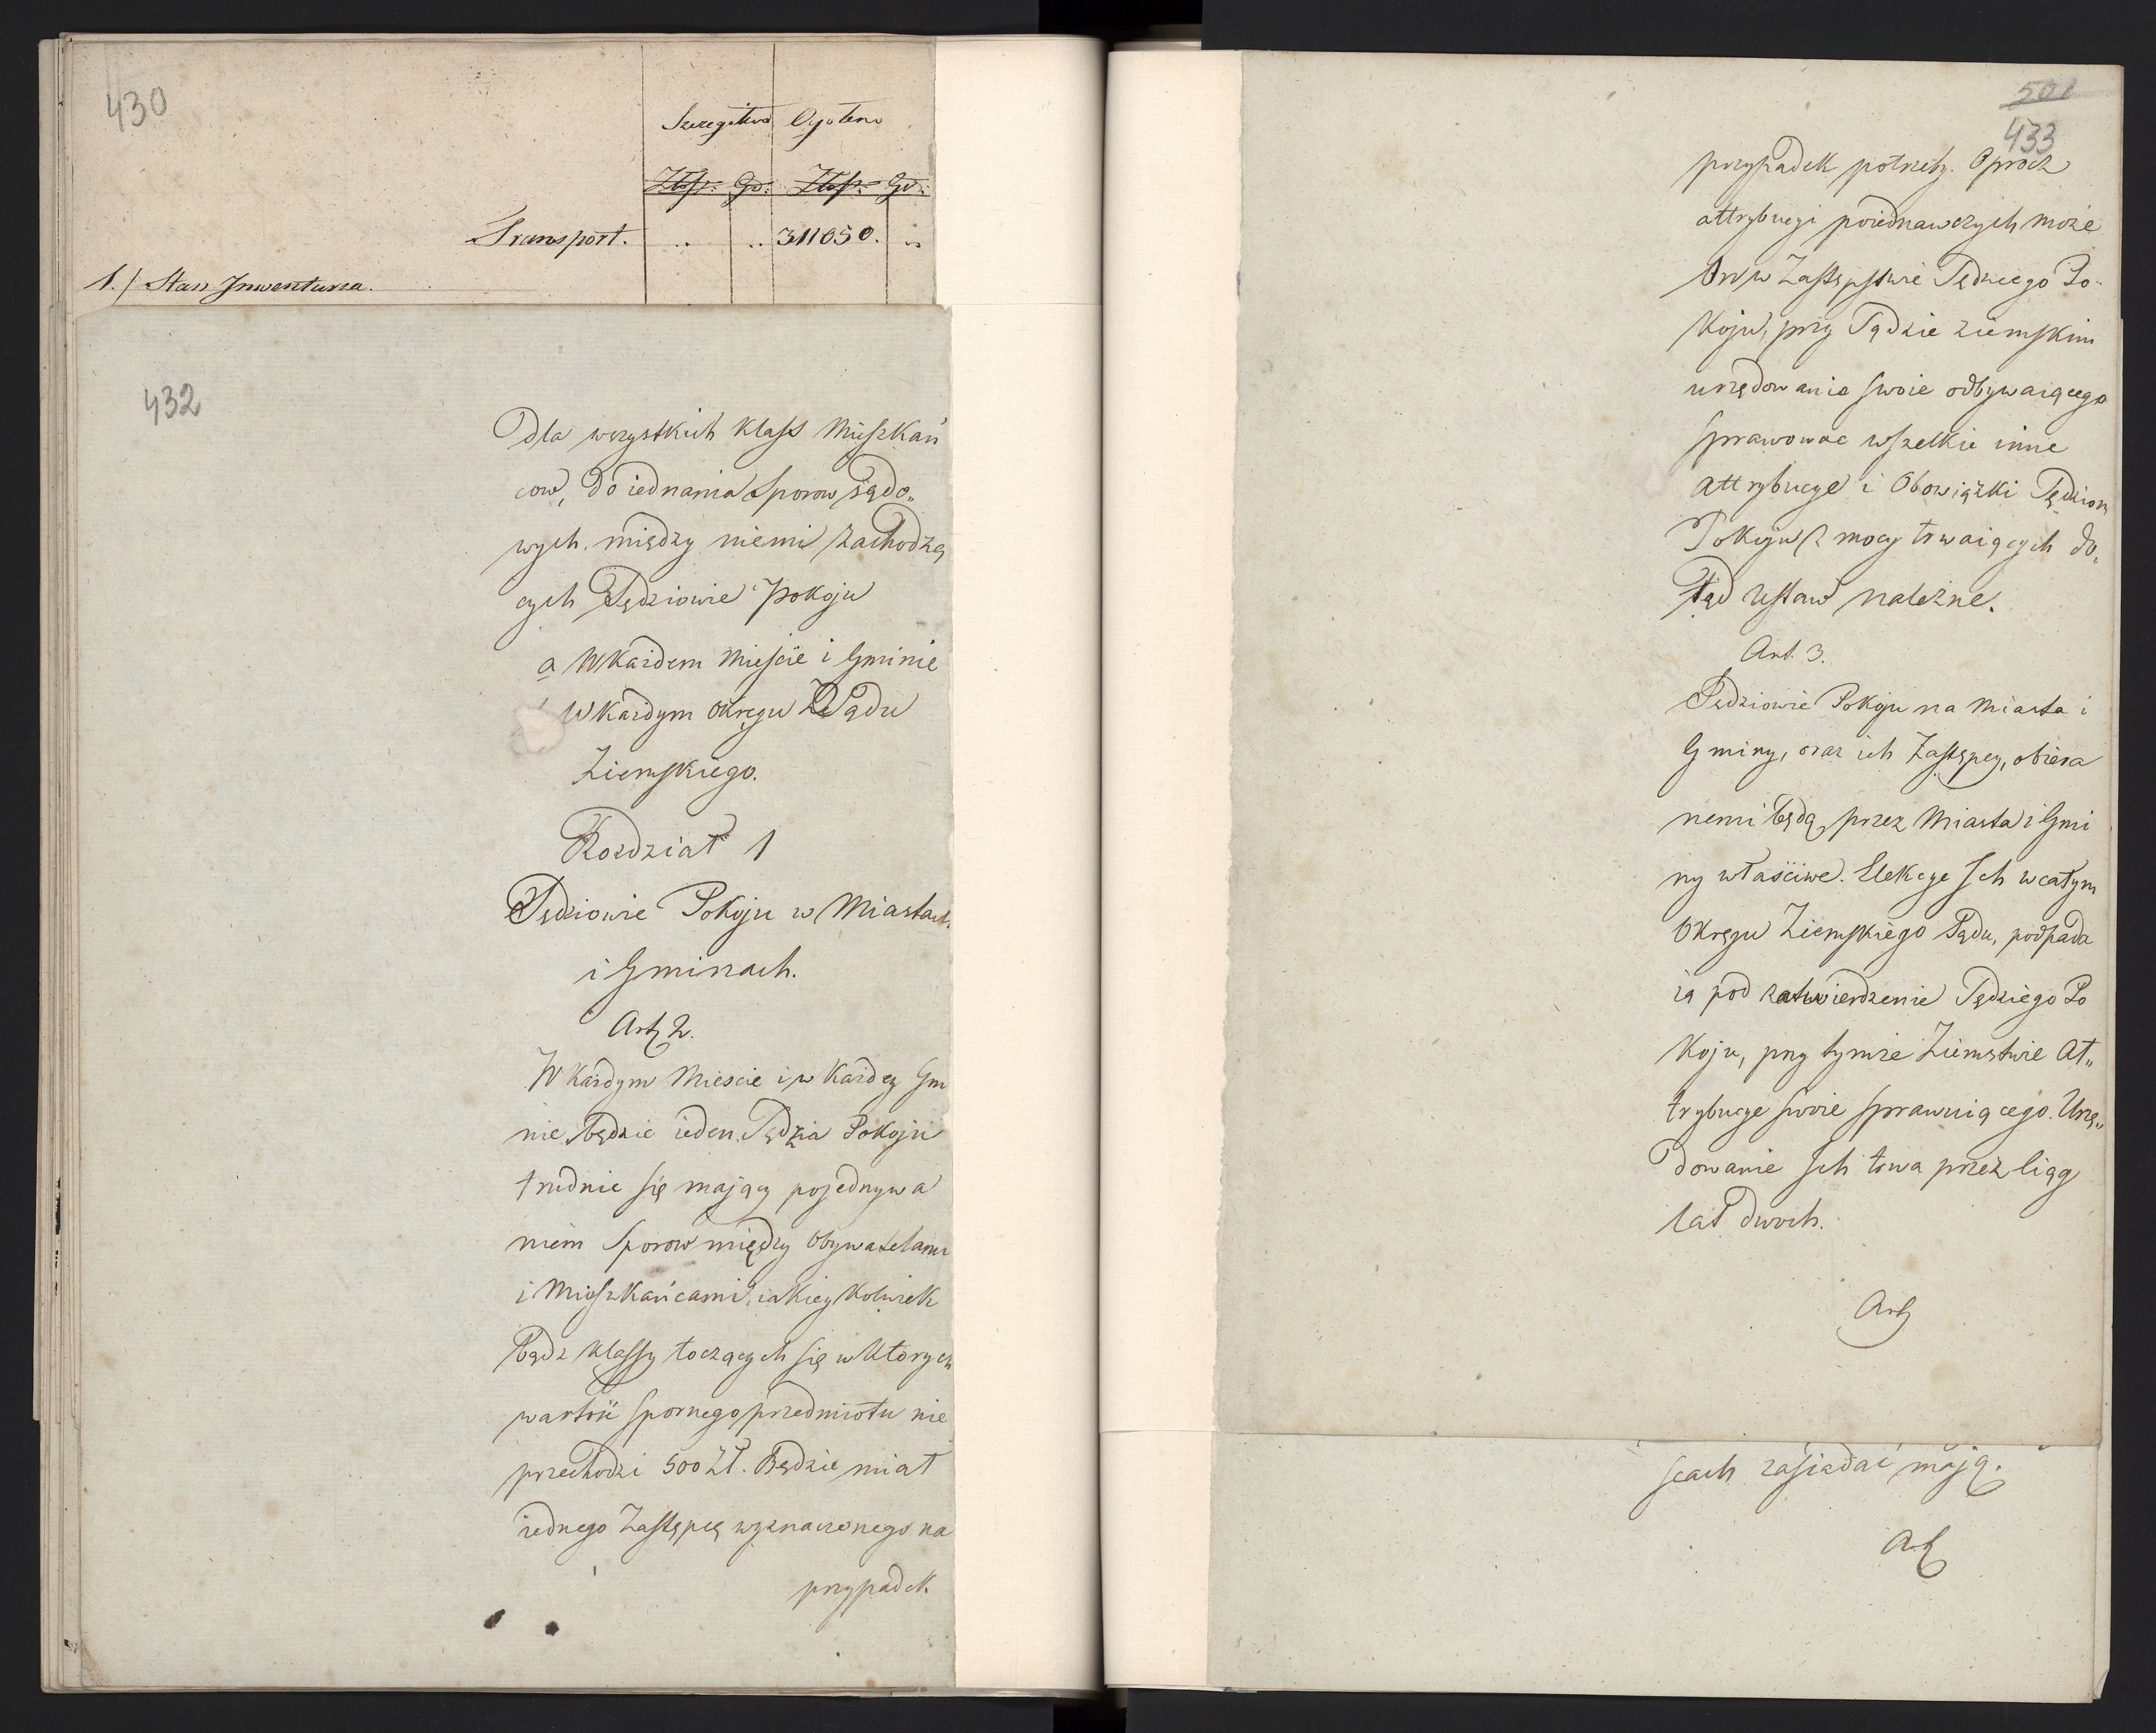 430
Szczegółowo Ogółem
Złotp. Gr. Złotp. Gr.
Transport. .. .. 311050. ..
1./ Stan Inwentarza.
432
Dla wszystkich klass Mieszkań
cow, do iednania Sporow sądo„
wych, między niemi zachodzą
cych Sędziowie Pokoju
a W każdem Mieście i Gminie
W każdym Okręgu Sądu
Ziemskiego.
Rozdział 1
Sędziowie Pokoju w Miastach
i Gminach.
Art 2.
W każdym Mieście i w każdey Gm
nie, będzie ieden Sędzia Pokoju
trudnić się mający pojednywa
niem Sporow między Obywatelami
i Mieszkańcami, iakiey kolwiek
bądź klassy toczących się w których
wartość spornego przedmiotu nie
przechodzi 500 Zł. Będzie miał
iednego Zastępcę wyznaczonego na
przypadek
501
433
przypadek potrzeby. Oprocz
attrybucyi poiednawczych może
On w Zastępstwie Sędziego Po-
koju, przy Sądzie Ziemskim
urzędowanie swoie odbywaiącego
sprawować wszelkie inne
attrybucye i Obowiązki Sędziom
Pokoju z mocy trwaiących do„
tąd Ustaw należne.
Art. 3.
Sędziowie Pokoju na Miasta i
Gminy, oraz ich Zastępcy, obiera
nemi będą przez Miasta i Gmi
ny właściwe. Elekcye Ich w całym
Okręgu Ziemskiego Sądu, podpada
ią pod zatwierdzenie Sędziego Po
koju, przy tymże Ziemstwie At„
trybucye swoie sprawuiącego. Urzę„
dowanie Ich trwa przez ciąg
lat dwoch.
Art
scach zasiadać mają.
Art